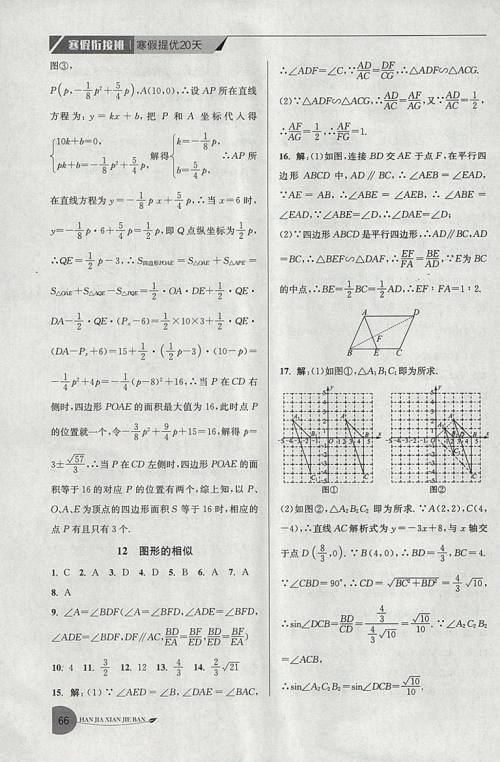 寒假衔接班 寒假提优20天
图③,
P(p,-1/8p²+5/4p),A(10,0),∴设 AP 所在直线
方程为:y=kx+b,把 P 和 A 坐标代入得
{10k+b=0, pk+b=-1/8p²+5/4p, 解得{k=-1/8p, b=5/4p, ∴AP 所
在直线方程为 y=-1/8px+5/4p,∴当 x=6 时,
y=-1/8p·6+5/4p=1/2p,即 Q 点纵坐标为 1/2p,
∴QE=1/2p-3,∴S四边形POAE=S△OAE+S△APE=
S△OAE+S△AQE-S△PQE=1/2·OA·DE+1/2·QE·
DA-1/2·QE·(Pₓ-6)=1/2×10×3+1/2·QE·
(DA-Pₓ+6)=15+1/2·(1/2p-3)·(10-p)=
-1/4p²+4p=-1/4(p-8)²+16,∴当 P 在 CD 右
侧时,四边形 POAE 的面积最大值为 16,此时点 P
的位置就一个,令-3/8p²+9/4p+15=16,解得 p=
3±√57/3,∴当 P 在 CD 左侧时,四边形 POAE 的面
积等于 16 的对应 P 的位置有两个,综上知,以 P、
O、A、E 为顶点的四边形面积 S 等于 16 时,相应的
点 P 有且只有 3 个.
12 图形的相似
1. C 2. A 3. D 4. D 5. B 6. A 7. A
8. A
9. ∠A=∠BDF(∠A=∠BFD,∠ADE=∠BFD,
∠ADE=∠BDF,DF//AC,BD/EA=BF/ED,BD/ED=BF/EA)
10. 4 11. 3/2 12. 12 13. 4/3 14. 2/3√21
15. 解:(1)∵∠AED=∠B,∠DAE=∠BAC,
∴∠ADF=∠C,∵AD/AC=DF/CG,∴△ADF∽△ACG.
(2)∵△ADF∽△ACG,∴AD/AC=AF/AG,又∵AD/AC=1/2,
∴AF/AG=1/2,∴AF/FG=1.
16. 解:(1)如图,连接 BD 交 AE 于点 F,在平行四
边形 ABCD 中,AD∥BC,∴∠AEB=∠EAD,
∵AE=AB,∴∠ABE=∠AEB,∴∠ABE=
∠EAD,∵∠ABE=∠D,∴∠DAE=∠D;
(2)∵四边形 ABCD 是平行四边形,∴AD∥BC,AD
=BC,∴△BEF∽△DAF,∴EF/FA=BE/AD,∵E 为 BC
的中点,∴BE=1/2BC=1/2AD,∴EF:FA=1:2.
A D
F
B E C
17. 解:(1)如图①,△A₁B₁C₁即为所求.
图① 图②
(2)如图②,△A₂B₂C₂ 即为所求.∵A(2,2),C(4,
-4),∴直线 AC 解析式为 y=-3x+8,与 x 轴交
于点 D(8/3,0).∵B(4,0),∴BD=4/3,BC=4.
∵∠CBD=90°,∴CD=√(BC²+BD²)=4/3√10,
∴sin∠DCB=BD/CD=(4/3)/(4/3√10)=√10/10.∵∠A₂C₂B₂
=∠ACB,
∴sin∠A₂C₂B₂=sin∠DCB=√10/10.
66 HAN JIA XIAN JIE BAN